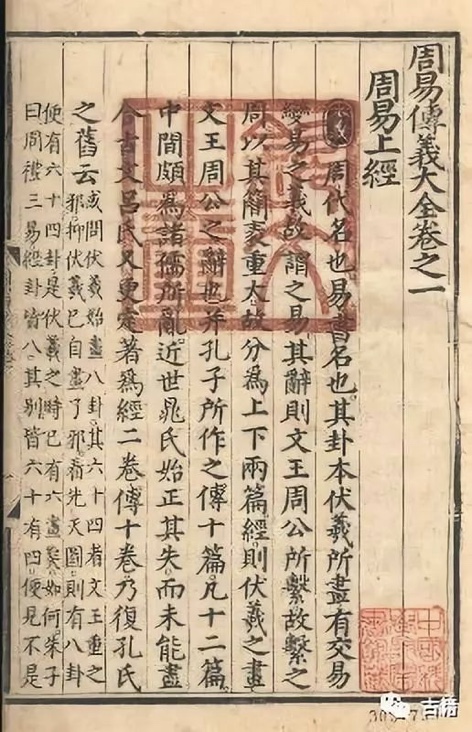 周易傳義大全卷之一
周易上經
本義 周代名也易書名也其卦本伏羲所畫有交易
變易之義故謂之易其辭則文王周公所繫故繫之
周以其簡袠重大故分爲上下兩篇經則伏羲之畫
文王周公之辭也并孔子所作之傳十篇凡十二篇
中間頗爲諸儒所亂近世晁氏始正其失而未能盡
合古文呂氏又更定著爲經二卷傳十卷乃復孔氏
之舊云
或問伏羲始畫八卦其六十四者文王重之
邪抑伏羲已自畫了邪看先天圖則有八卦
便有六十四卦是伏羲之時已有六畫矣如何朱子
曰周禮三易經卦皆八其別皆六十有四便見不是
古籍